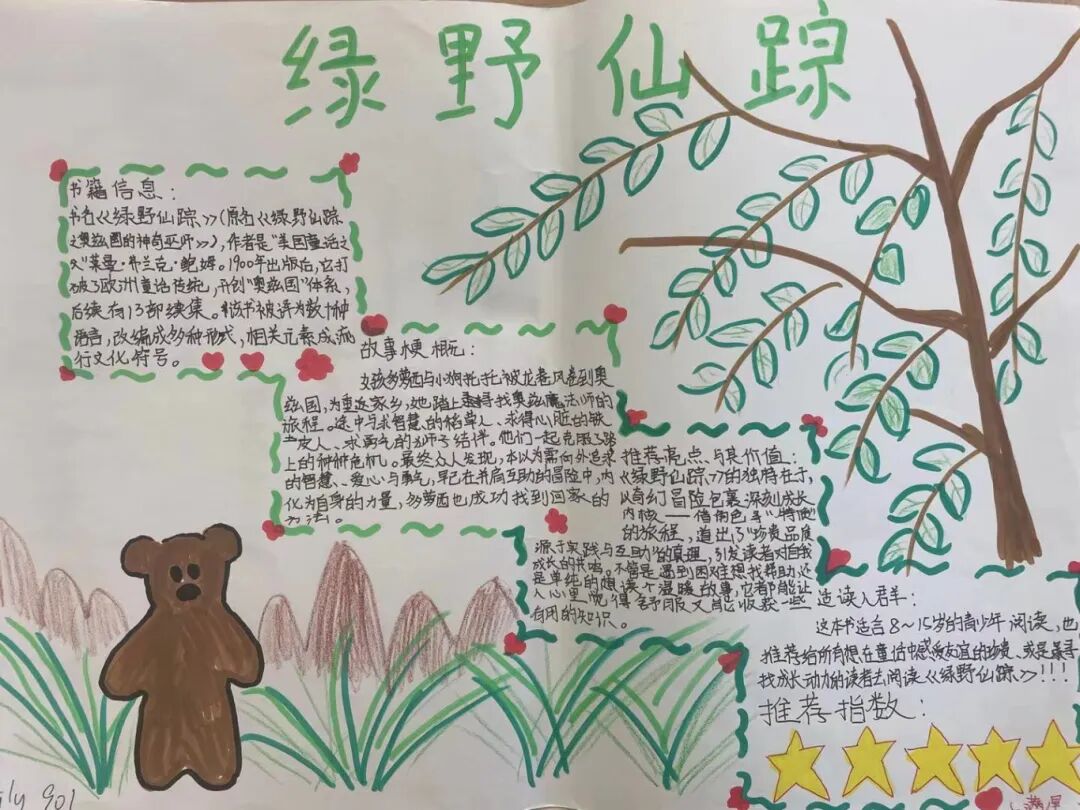 绿野仙踪
书籍信息：
书名《绿野仙踪》(原名《绿野仙踪
之奥兹国的神奇巫师》)，作者是“美国童话之
父”莱曼·弗兰克·鲍姆。1900年出版后，它打
破了欧洲童话传统，开创“奥兹国”体系，
后续有13部续集。该书被译为数十种
语言，改编成多种形式，相关元素成流
行文化符号。
故事梗概：
女孩多萝西与小狗托托被龙卷风卷到奥
兹国，为重返家乡，她踏上寻找奥兹魔法师的
旅程。途中与求智慧的稻草人、求得心脏的铁
皮人、求勇气的狮子结伴。他们一起克服了路
上的种种危机。最终众人发现，本以为需向外追求
的智慧、爱心与勇气，早已在并肩互助的冒险中，内
化为自身的力量，多萝西也成功找到回家的
方法。
推荐亮点与其价值：
《绿野仙踪》的独特在于，
以奇幻冒险包裹深刻成长
内核——借角色寻“特质”
的旅程，道出了“珍贵品质
源于实践与互助”的真理，引发读者对自我
成长的共鸣。不管是遇到困难想找帮助，还
是单纯的想读个温暖故事，它都能让
人心里觉得舒服又能收获一些
有用的知识。
适读人群：
这本书适合8～15岁的青少年阅读，也
推荐给所有想在童话中感受友谊的珍贵、或是寻
找成长动力的读者去阅读《绿野仙踪》!!!
推荐指数：
ly 901
满星